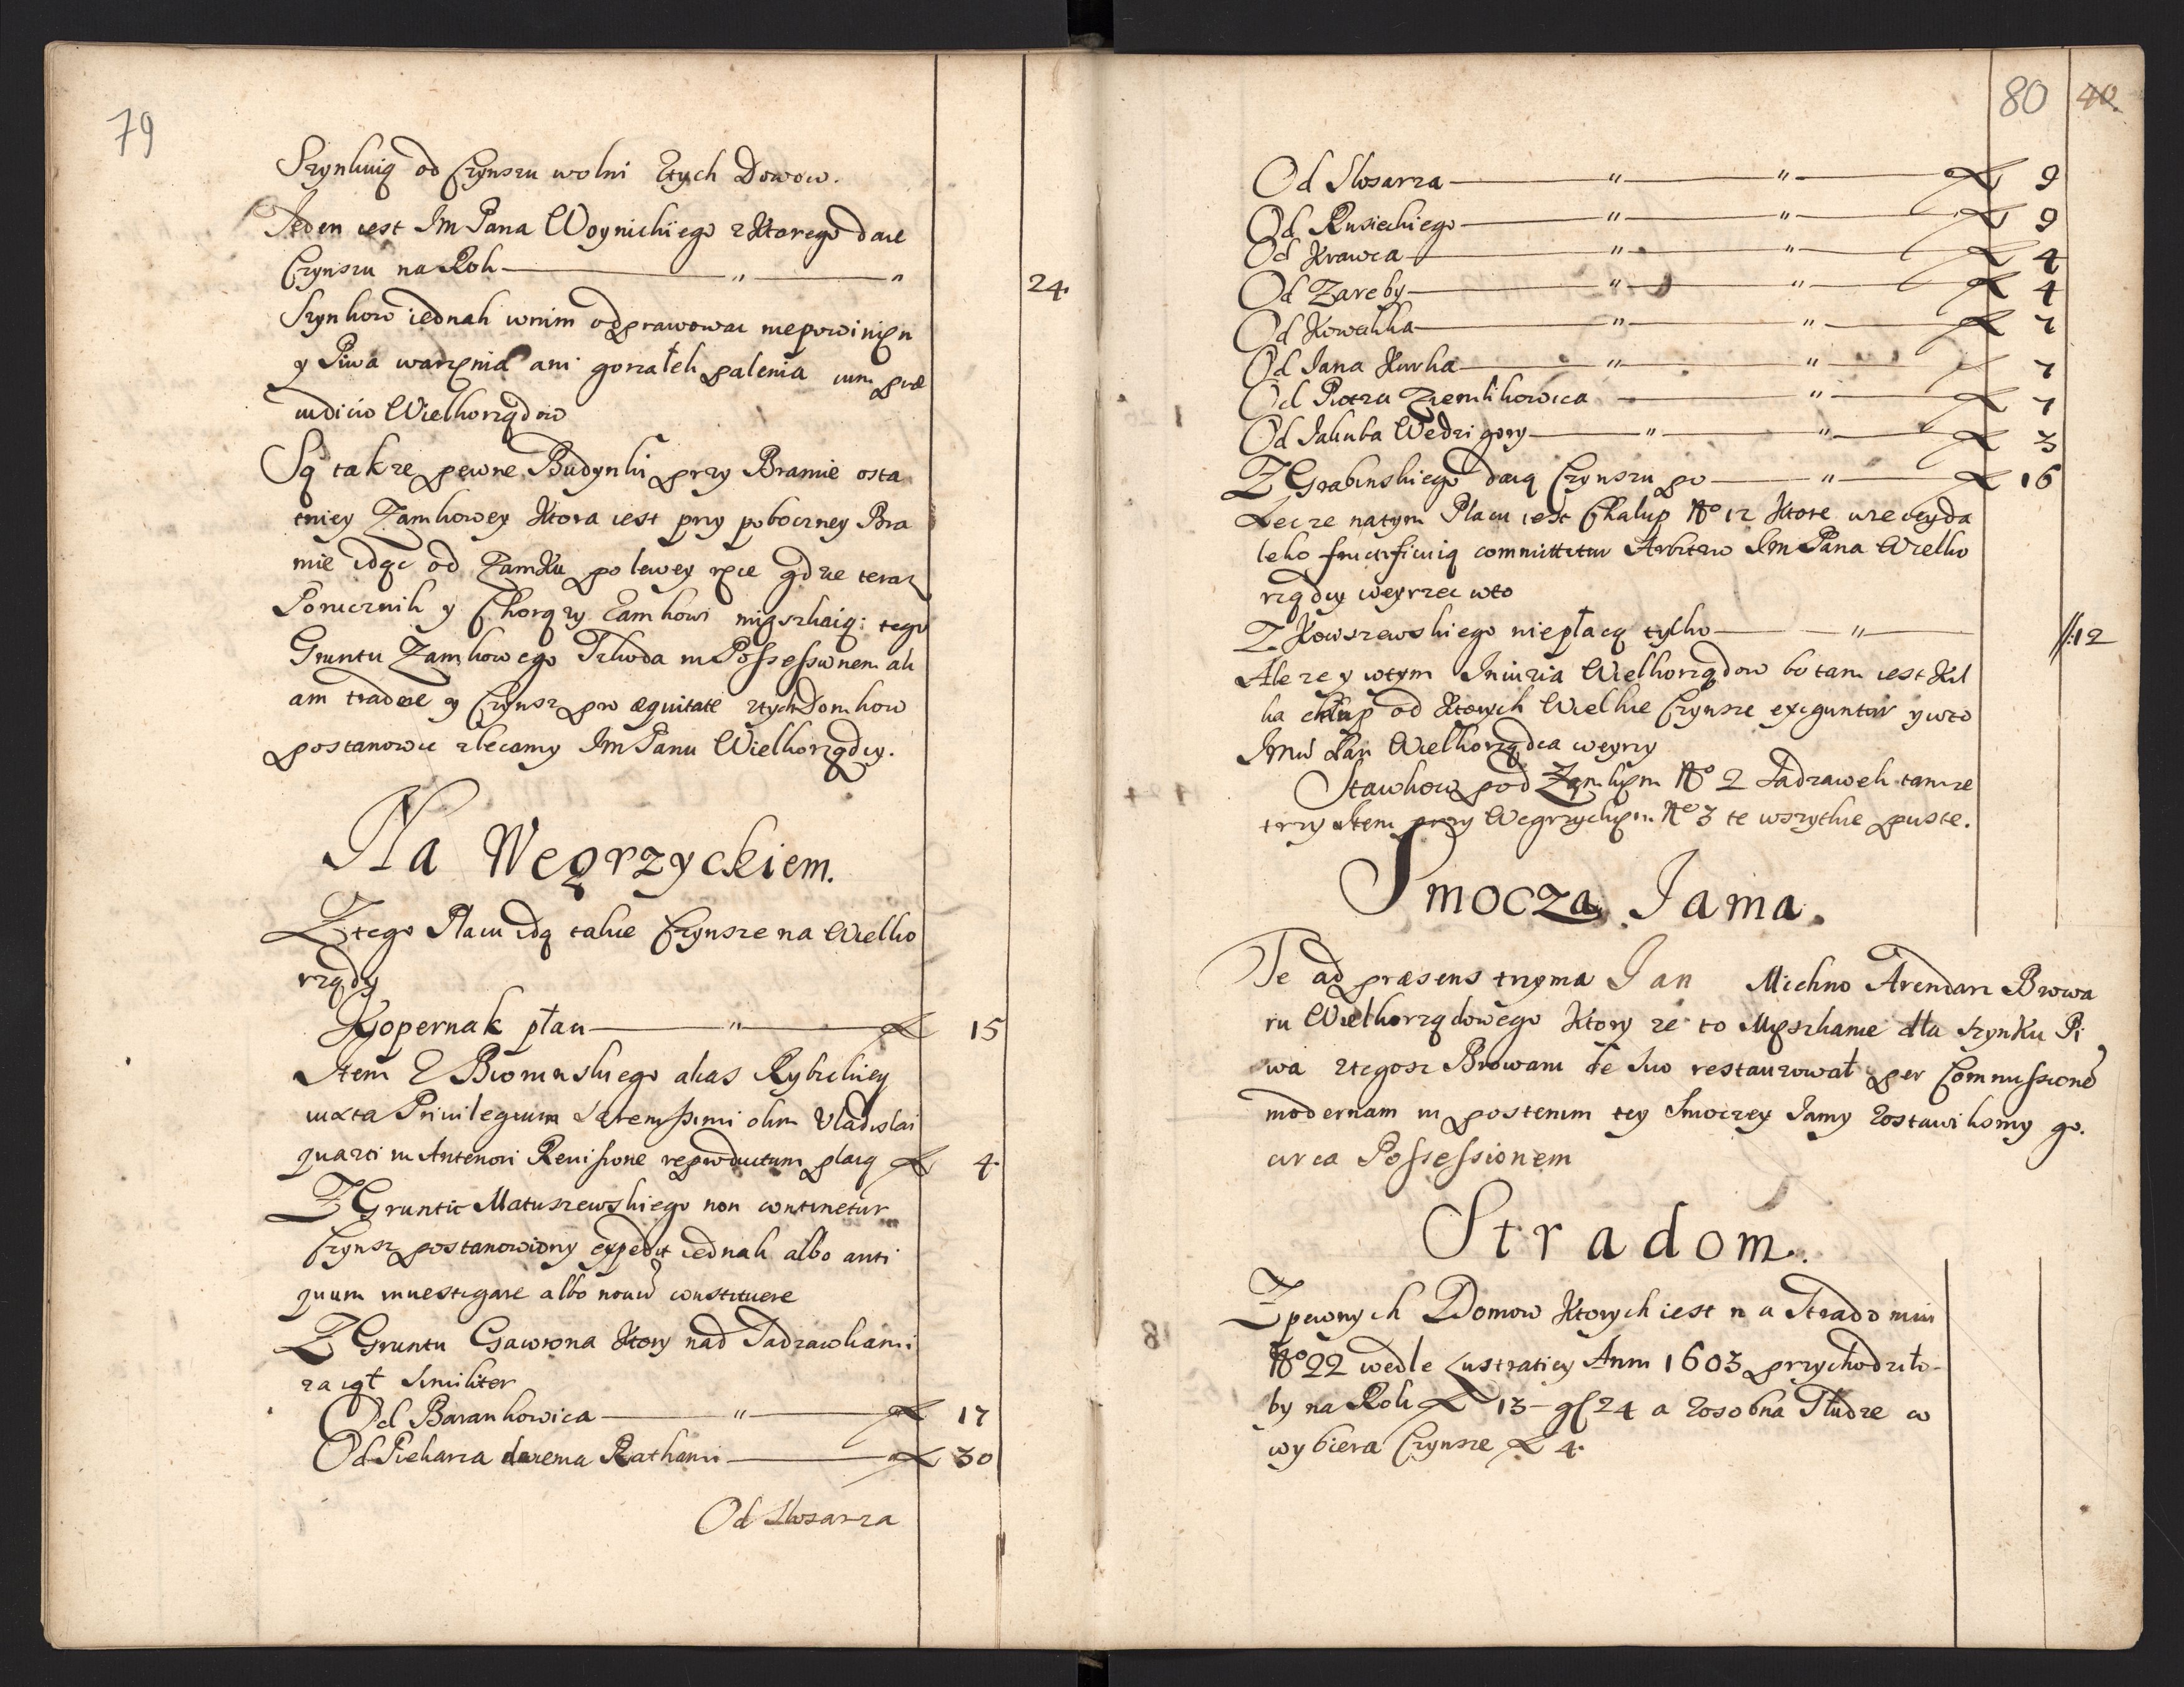 79
Szynkuią od Czynszu wolni Ztych Dowow.
Jeden iest Im Pana Woynickiego z Ktorego daie
Czynszu na Rok — " — " 24.
Szynkow iednak wnim odprawowac niepowinien
y Piwa warzenia ani gorzałek palenia cum præ
iudicio Wielkorządow
Są takze pewne Budynki przy Bramie osta
tniey Zamkowey Ktora iest przy poboczney Bra
mie idąc od Zamku po lewey ręce gdzie teraz
Porucznik y Chorązy Zamkowi mięszkaią: tego
Gruntu Zamkowego Szkoda in Possessionem ali
am tradere y Czynsz pro æquitate ztych Domkow
postanowic zlecamy Im Panu Wielkorządcy.
Na Węgrzyckiem.
Z tego Placu idą takie Czynsze na Wielko
rządy
Kopernak płaci — " — ƶ 15
Item Z Broninskiego alias Rybickiey
iuxta Priuilegium Serenissimi olim Vladislai
quarti in Anteriori Reuisione reproductum płacą ƶ 4.
Z Gruntu Matuszewskiego non continetur
Czynsz postanowiony expedit iednak albo anti
quum inuestigare albo nouũ constituere
Z Gruntu Gawrona Ktory nad Sadzawkami
zaiął Similiter
Od Barankowica — " — ƶ 17
Od Piekarza Rathami — ƶ 30
Od Slosarza
80 40.
Od Slosarza — " — " — ƶ 9
Od Rusieckiego — " — " — ƶ 9
Od Krawca — " — " — ƶ 4
Od Zareby — " — " — ƶ 4
Od Kowalika — " — " — ƶ 7
Od Iana Kurka — " — " — 7
Od Piotra Ziemlikowica — " — ƶ 7
Od Iakuba Wedzigory — " — " — ƶ 3
Z Grabinskiego daią Czynszu po — " — ƶ 16
Lecze natym Placu iest Chalup No 12 Ktore uzeczyda
leko fructificuią committitur Arbitrio Im Pana Wielko
rządcy weyrzec wto
Z Kowszewskiego niepłacą tylko — " — //:12
Ale ze y wtym Iniuria Wielkorządow bo tam iest Kil
ka chałup od Ktorych Wielkie Czynsze exiguntur ywto
Imć Pan Wielkorządca weyrzy
Stawkow pod Zamkiem No 2 Sadzawek tamze
trzy Item przy Węgrzyckiem No 3 te wszytkie puste.
Smocza Iama.
Te ad præsens trzyma Ian Michno Arendarz Browa
ru Wielkorządowego Ktory ze to Męszkanie dla Szynku Pi
wa ztegosz Browaru de suo restaurował per Commissionẽ
modernam in posterum tey Smoczey Iamy Zostawilismy go.
circa Possessionem
Stradom.
Z pewnych Domow Ktorych iest na Stradomiu
No 22 wedle Lustratiey Anni 1603 przychodziło-
by na Rok ƶ 13 – gſ 24 a Zosobna Studze co
wybiera Czynsze ƶ 4.